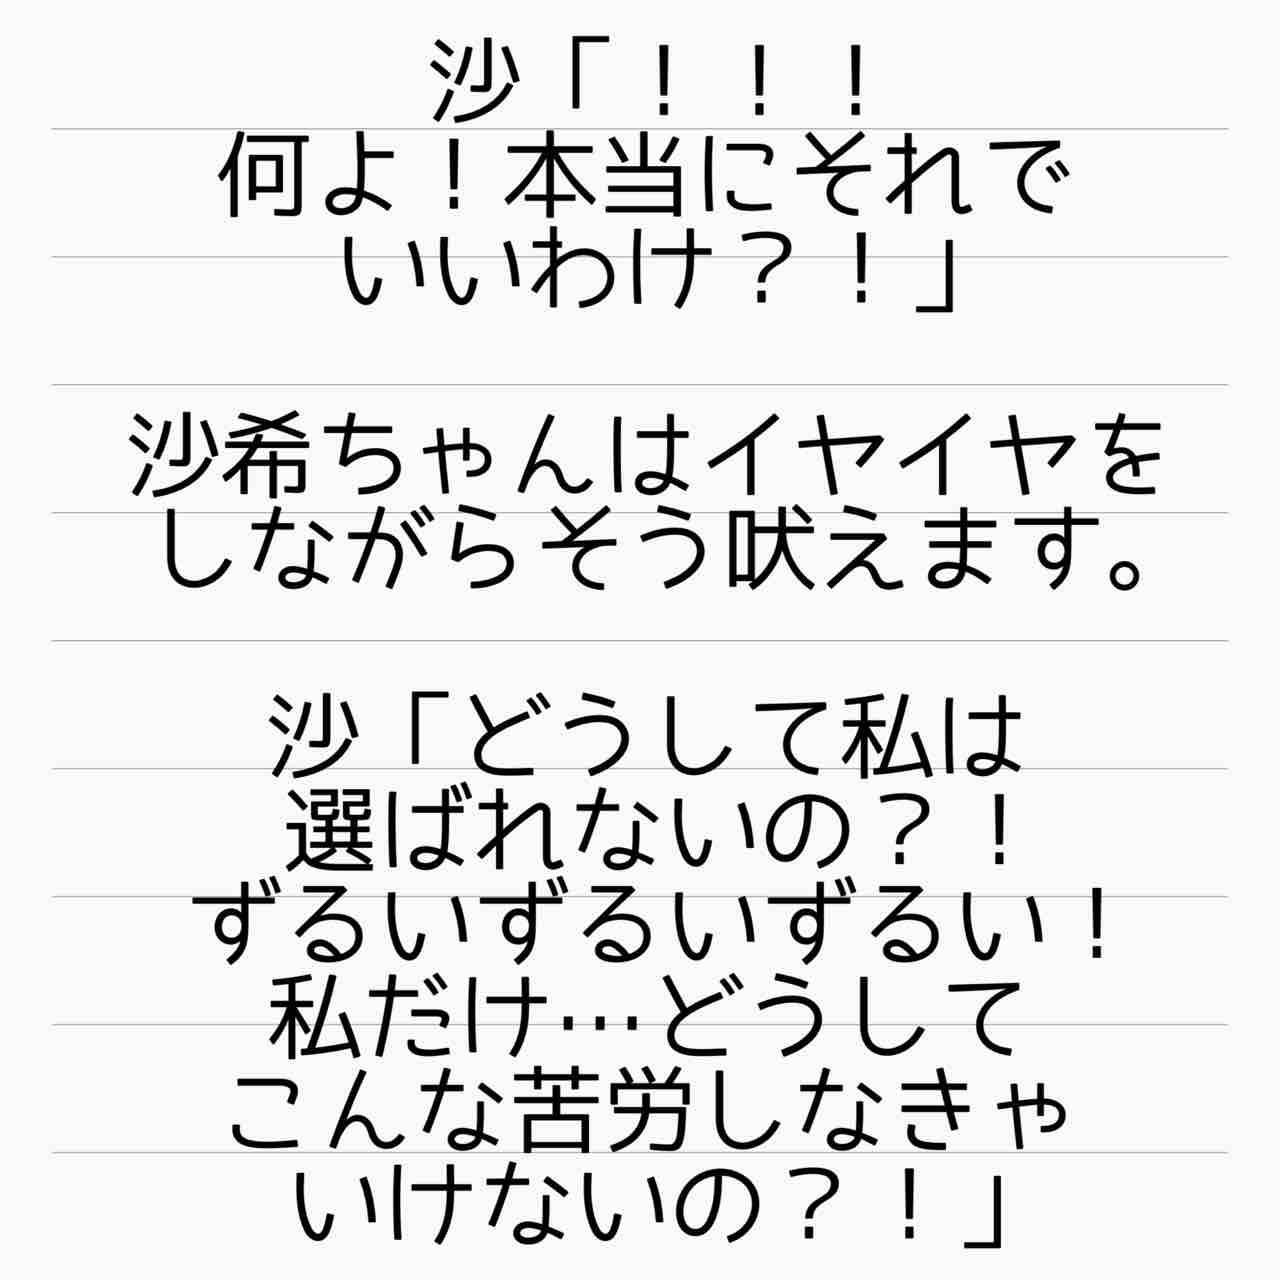 沙「！！！
何よ！本当にそれで
いいわけ？！」
沙希ちゃんはイヤイヤを
しながらそう吠えます。
沙「どうして私は
選ばれないの？！
ずるいずるいずるい！
私だけ…どうして
こんな苦労しなきゃ
いけないの？！」